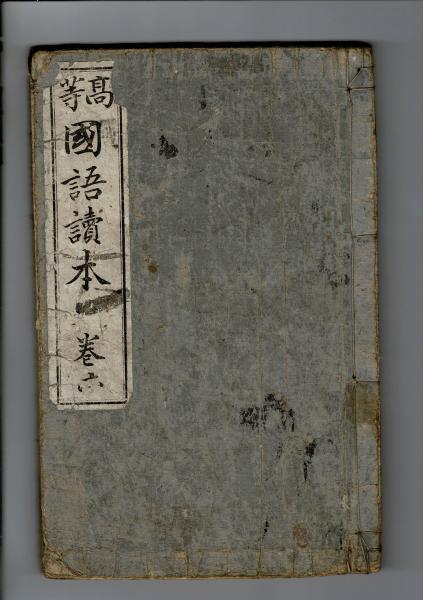 高等
國語讀本
卷六